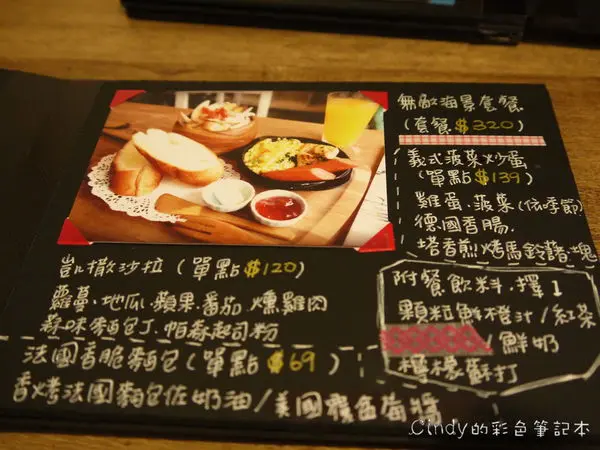 無敵海景套餐
(套餐$320)
義式菠菜炒蛋
(單點$139)
雞蛋.菠菜(依季節)
德國香腸.
塔香煎烤馬鈴薯.塊
凱撒沙拉(單點$120)
蘿蔓.地瓜.蘋果.番茄.燻雞肉
蒜味麵包丁.帕森起司粉
法國香脆麵包(單點$69)
香烤法國麵包佐奶油/美國藍莓
附餐飲料.擇1
顆粒鮮橙汁/紅茶
/鮮奶
檸檬蘇打
Cindy的彩色筆記本